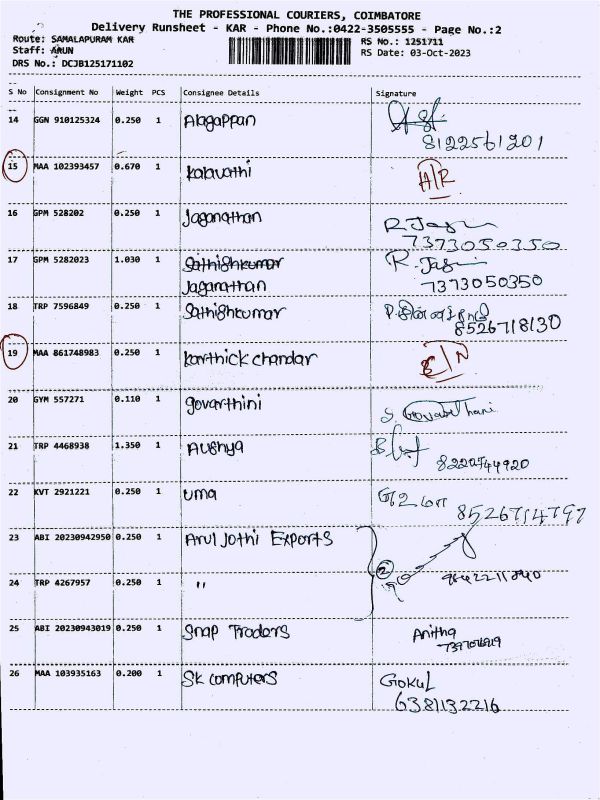 THE PROFESSIONAL COURIERS, COIMBATORE
Delivery Runsheet - KAR - Phone No.:0422-3505555 - Page No.:2
Route: SAMALAPURAM KAR
RS No.: 1251711
Staff: ARUN
RS Date: 03-Oct-2023
DRS No.: DCJB125171102
S No Consignment No Weight PCS Consignee Details Signature
14 GGN 910125324 0.250 1 Alagappan
8122561201
15 MAA 102393457 0.670 1 Kalavathi
16 GPM 528202 0.250 1 Jaganathan
7373050350
17 GPM 5282023 1.030 1 Sathishkumar
Jaganathan
7373050350
18 TRP 7596849 0.250 1 Sathishkumar
8526718130
19 MAA 861748983 0.250 1 Karthick chandar
20 GYM 557271 0.110 1 Govarthini
21 TRP 4468938 1.350 1 Aushya
22 KVT 2921221 0.250 1 uma உமா
8526714797
23 ABI 20230942950 0.250 1 Arul Jothi Exports
24 TRP 4267957 0.250 1 "
25 ABI 20230943019 0.250 1 Snap Traders Anitha
26 MAA 103935163 0.200 1 SK computers Gokul
6381132216